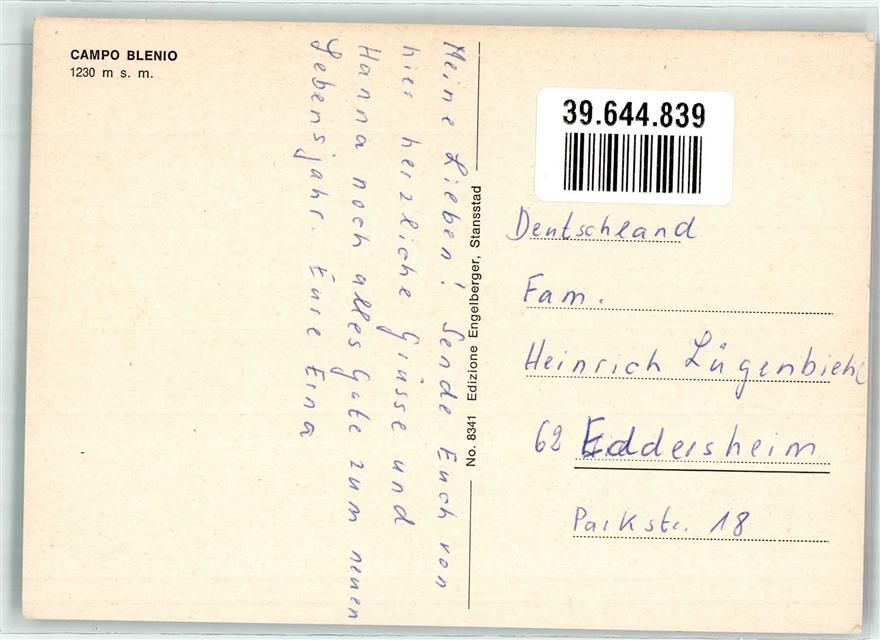 CAMPO BLENIO
1230 m s. m.
Meine Lieben! Sende Euch von
hier herzliche Grüsse und
Hanna noch alles Gute zum neuen
Lebensjahr. Eure Erna
No. 8341 Edizione Engelberger, Stansstad
39.644.839
Deutschland
Fam.
Heinrich Lügenbiehl
62 Eddersheim
Parkstr. 18